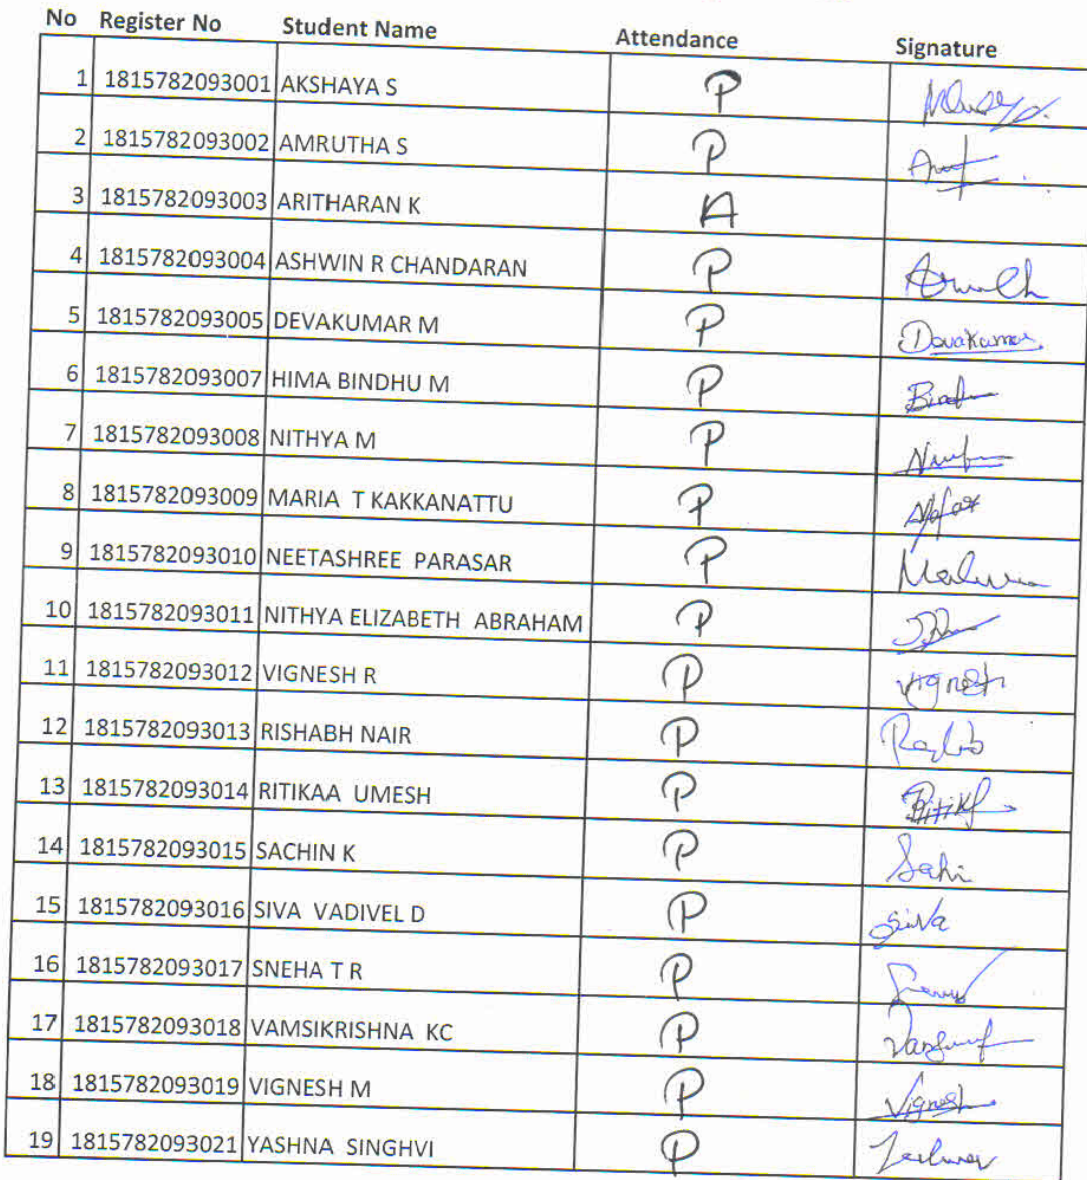 No Register No Student Name Attendance Signature
1 1815782093001 AKSHAYA S P
2 1815782093002 AMRUTHA S P
3 1815782093003 ARITHARAN K A
4 1815782093004 ASHWIN R CHANDARAN P
5 1815782093005 DEVAKUMAR M P Devakumar
6 1815782093007 HIMA BINDHU M P
7 1815782093008 NITHYA M P
8 1815782093009 MARIA T KAKKANATTU P
9 1815782093010 NEETASHREE PARASAR P
10 1815782093011 NITHYA ELIZABETH ABRAHAM P
11 1815782093012 VIGNESH R P Vignesh
12 1815782093013 RISHABH NAIR P
13 1815782093014 RITIKAA UMESH P
14 1815782093015 SACHIN K P
15 1815782093016 SIVA VADIVEL D P Siva
16 1815782093017 SNEHA T R P
17 1815782093018 VAMSIKRISHNA KC P
18 1815782093019 VIGNESH M P Vignesh
19 1815782093021 YASHNA SINGHVI P